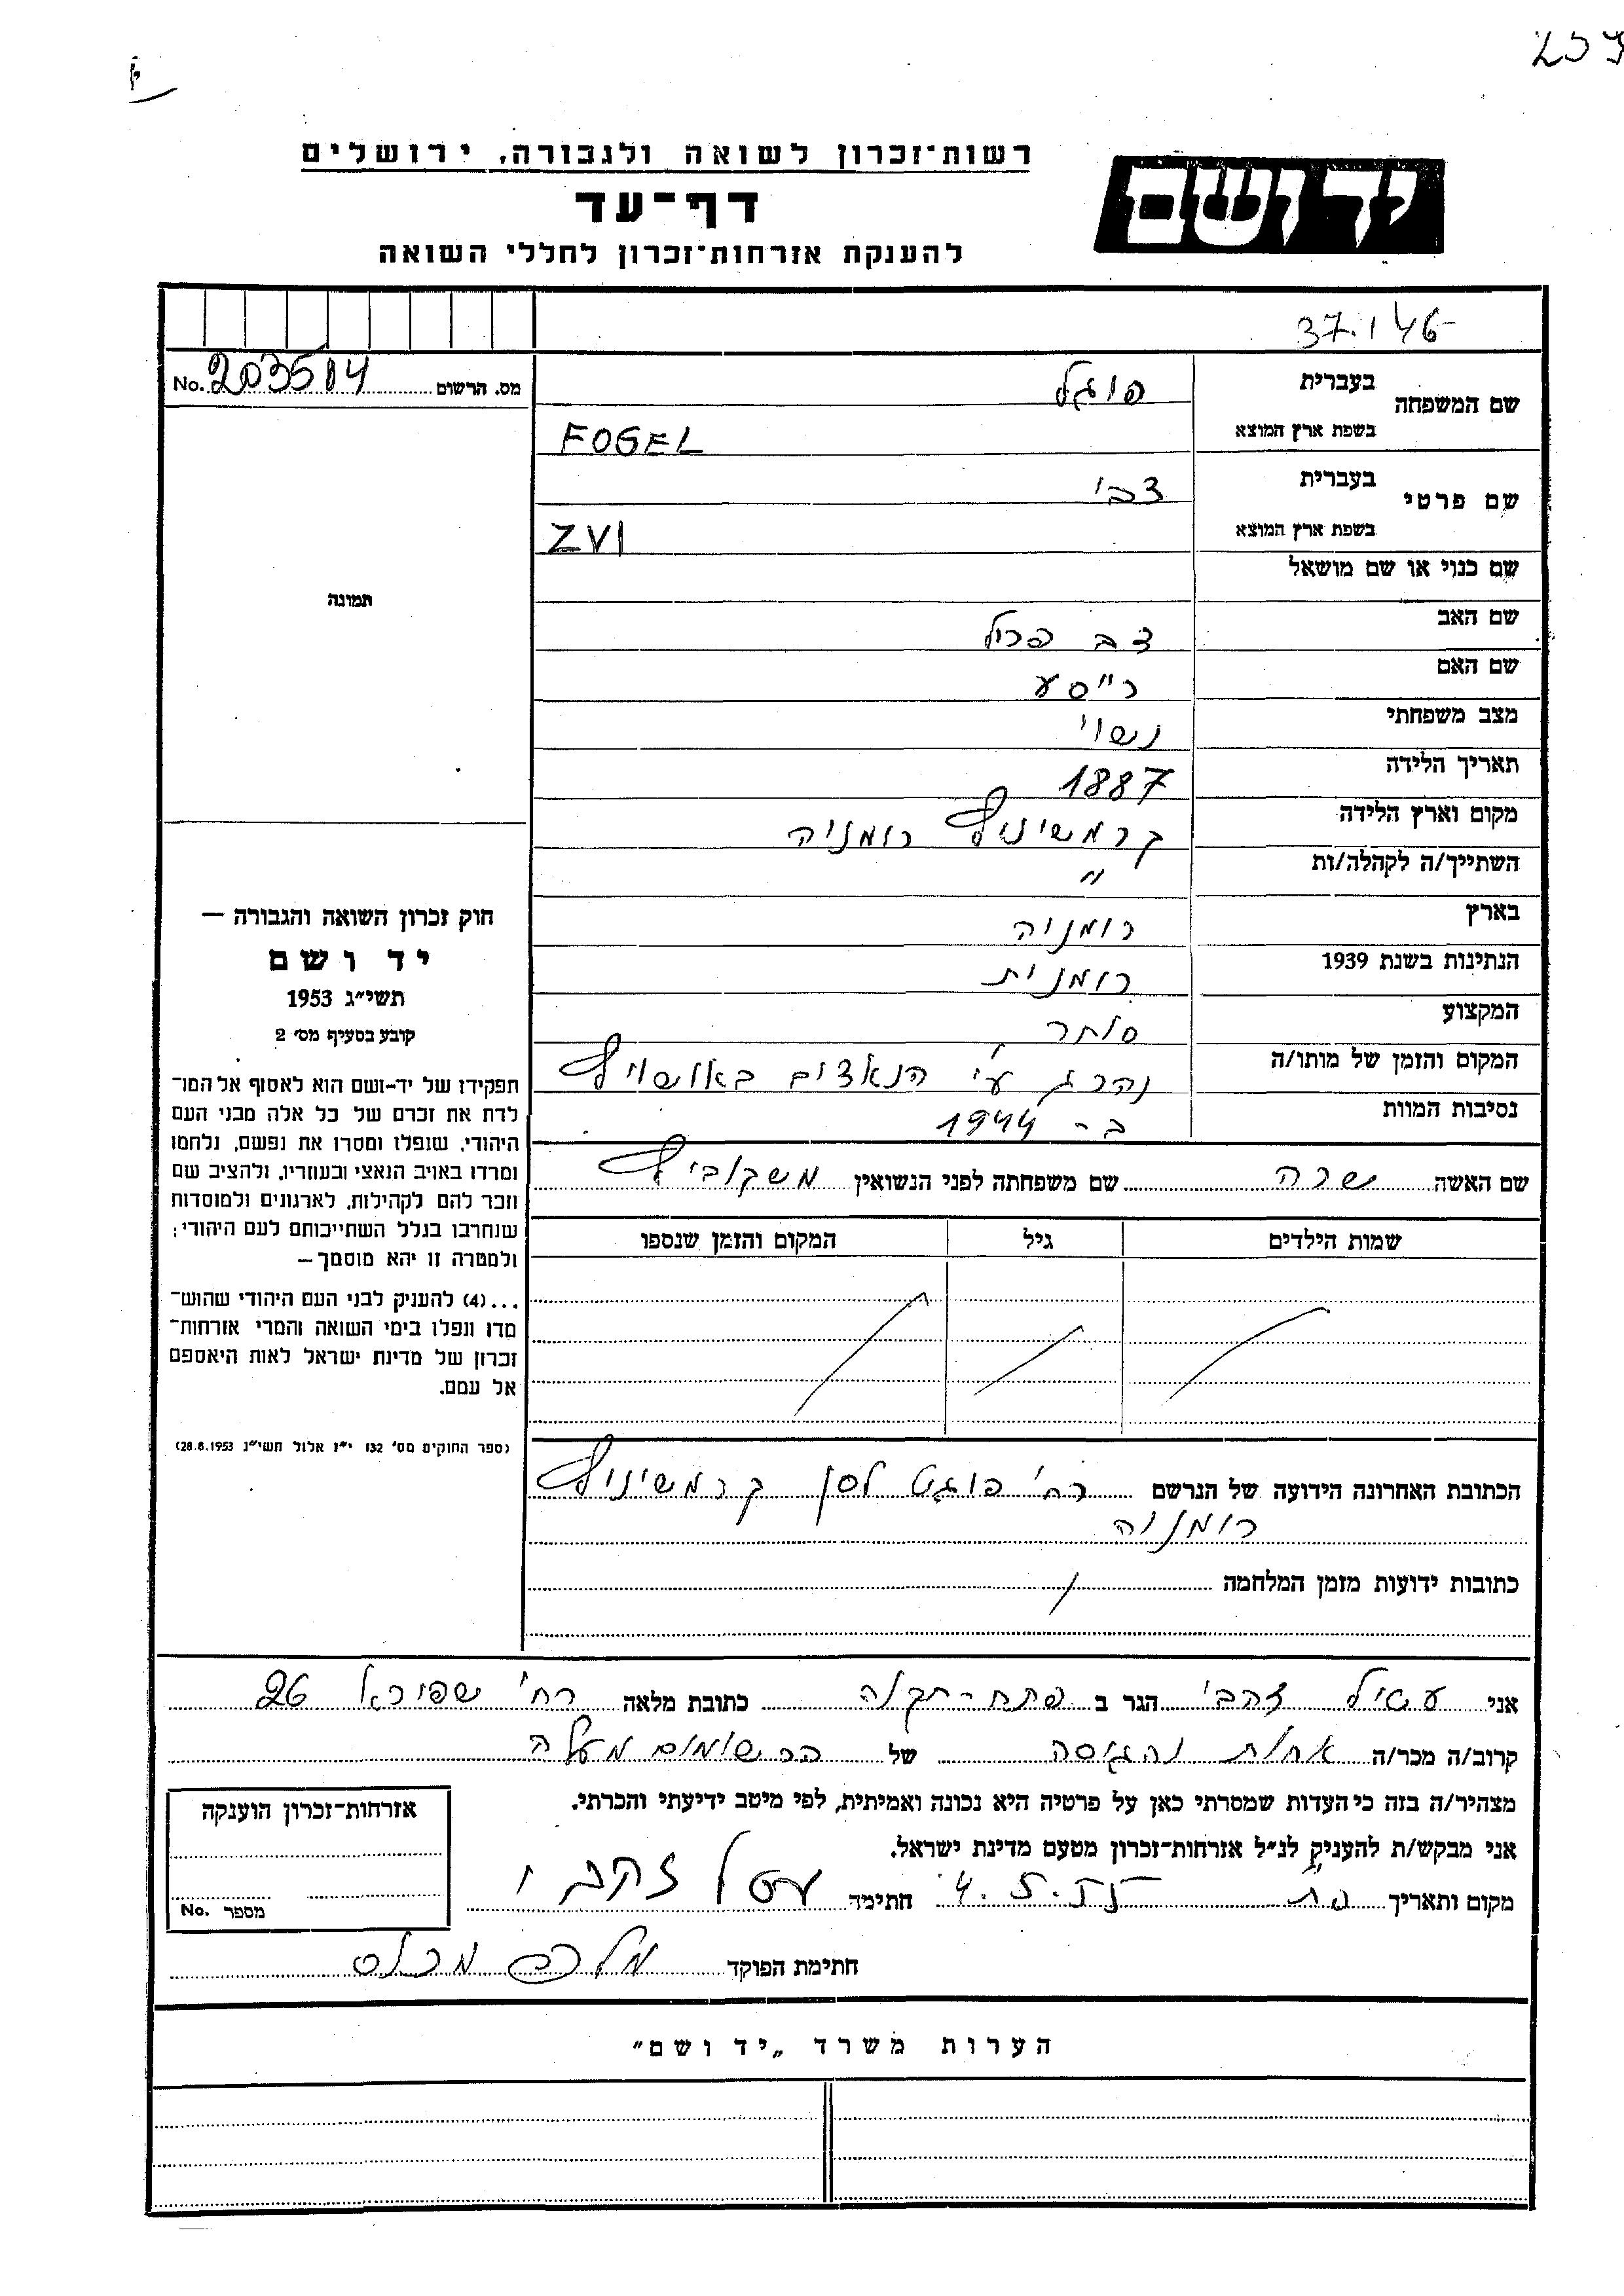 רשות־זכרון לשואה ולגבורה, ירושלים
דף־עד
להענקת אזרחות־זכרון לחללי השואה
יד ושם
37.146
No. 203514 מס. הרשום
שם המשפחה בעברית פוגל
בשפת ארץ המוצא FOGEL
שם פרטי בעברית צבי
בשפת ארץ המוצא ZVI
שם כנוי או שם מושאל
תמונה
שם האב
שם האם רייסע
מצב משפחתי נשוי
תאריך הלידה 1887
מקום וארץ הלידה קרמשיניץ רומניה
השתייך/ה לקהלה/ות "
בארץ רומניה
הנתינות בשנת 1939 רומנית
המקצוע סוחר
המקום והזמן של מותו/ה נהרג ע"י הנאצים באושויץ
נסיבות המוות ב- 1944
שם האשה שרה שם משפחתה לפני הנשואין משקוביץ
שמות הילדים גיל המקום והזמן שנספו
חוק זכרון השואה והגבורה —
יד ושם
תשי״ג 1953
קובע בסעיף מס׳ 2
תפקידו של יד-ושם הוא לאסוף אל המו־
לדת את זכרם של כל אלה מבני העם
היהודי, שנפלו ומסרו את נפשם, נלחמו
ומרדו באויב הנאצי ובעוזריו, ולהציב שם
וזכר להם לקהילות, לארגונים ולמוסדות
שנחרבו בגלל השתייכותם לעם היהודי;
ולמטרה זו יהא מוסמך—
...(4) להעניק לבני העם היהודי שהוש־
מדו ונפלו בימי השואה והמרי אזרחות־
זכרון של מדינת ישראל לאות היאספם
אל עמם.
(ספר החוקים מס׳ 132 י״ז אלול תשי״ג 28.8.1953)
הכתובת האחרונה הידועה של הנרשם רח' קרמשיניץ
רומניה
כתובות ידועות מזמן המלחמה
אני זהבי הגר ב פתח-תקוה כתובת מלאה רח' שפירא 26
קרוב/ה מכר/ה של הרשומים מעלה
מצהיר/ה בזה כי העדות שמסרתי כאן על פרטיה היא נכונה ואמיתית, לפי מיטב ידיעתי והכרתי.
אני מבקש/ת להעניק לנ״ל אזרחות־זכרון מטעם מדינת ישראל.
מקום ותאריך פ"ת 4.5.55 חתימה זהבי
חתימת הפוקד
אזרחות־זכרון הוענקה
No. מספר
הערות משרד „יד ושם״